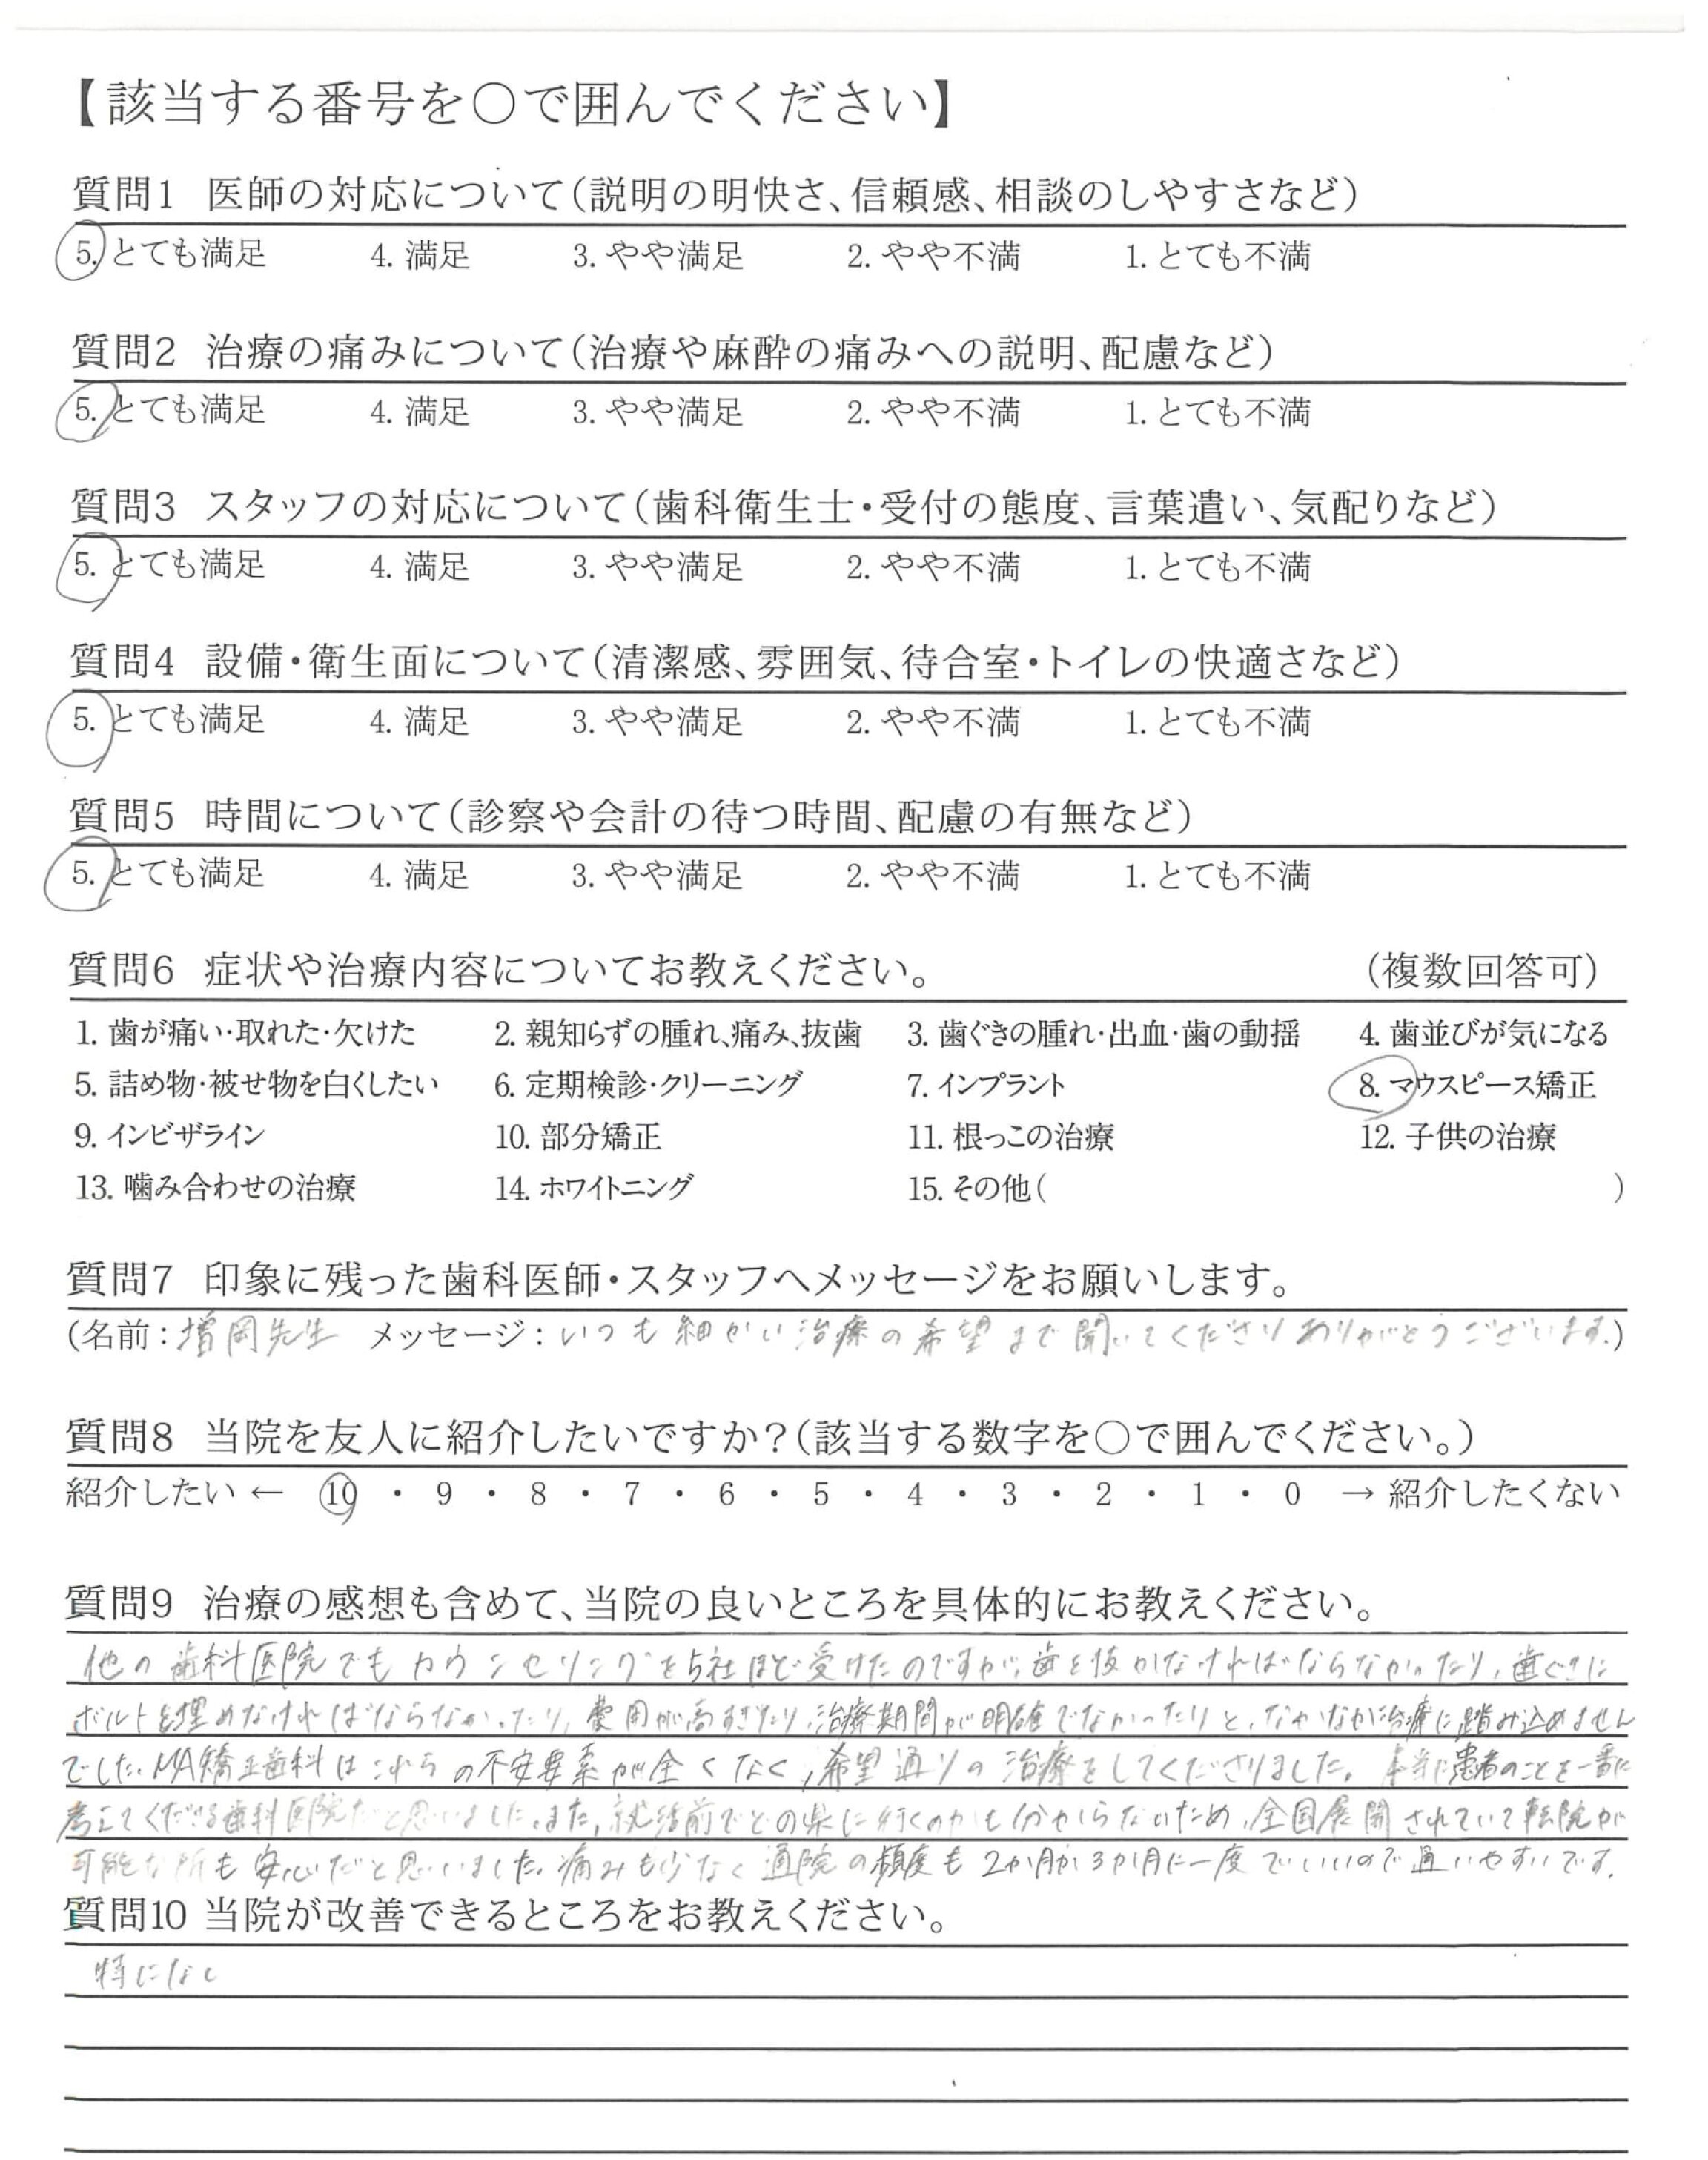 【該当する番号を○で囲んでください】
質問1 医師の対応について(説明の明快さ、信頼感、相談のしやすさなど)
5. とても満足 4. 満足 3. やや満足 2. やや不満 1. とても不満
質問2 治療の痛みについて(治療や麻酔の痛みへの説明、配慮など)
5. とても満足 4. 満足 3. やや満足 2. やや不満 1. とても不満
質問3 スタッフの対応について(歯科衛生士・受付の態度、言葉遣い、気配りなど)
5. とても満足 4. 満足 3. やや満足 2. やや不満 1. とても不満
質問4 設備・衛生面について(清潔感、雰囲気、待合室・トイレの快適さなど)
5. とても満足 4. 満足 3. やや満足 2. やや不満 1. とても不満
質問5 時間について(診察や会計の待つ時間、配慮の有無など)
5. とても満足 4. 満足 3. やや満足 2. やや不満 1. とても不満
質問6 症状や治療内容についてお教えください。 (複数回答可)
1. 歯が痛い・取れた・欠けた 2. 親知らずの腫れ、痛み、抜歯 3. 歯ぐきの腫れ・出血・歯の動揺 4. 歯並びが気になる
5. 詰め物・被せ物を白くしたい 6. 定期検診・クリーニング 7. インプラント 8. マウスピース矯正
9. インビザライン 10. 部分矯正 11. 根っこの治療 12. 子供の治療
13. 噛み合わせの治療 14. ホワイトニング 15. その他( )
質問7 印象に残った歯科医師・スタッフへメッセージをお願いします。
(名前:増岡先生 メッセージ:いつも細かい治療の希望まで聞いてくださりありがとうございます。)
質問8 当院を友人に紹介したいですか?(該当する数字を○で囲んでください。)
紹介したい ← 10 ・ 9 ・ 8 ・ 7 ・ 6 ・ 5 ・ 4 ・ 3 ・ 2 ・ 1 ・ 0 → 紹介したくない
質問9 治療の感想も含めて、当院の良いところを具体的にお教えください。
他の歯科医院でもカウンセリングを5社ほど受けたのですが、歯を抜かなければならなかったり、歯ぐきに
ボルトを埋めなければならなかったり、費用が高すぎたり、治療期間が明確でなかったりと、なかなか治療に踏み込めません
でした。MA矯正歯科はこれらの不安要素が全くなく、希望通りの治療をしてくださりました。本当に患者のことを一番に
考えてくださる歯科医院だと思いました。また、就活前でどの県に行くのかも分からないため、全国展開されていて転院が
可能な所も安心だと思いました。痛みも少なく通院の頻度も2か月か3か月に一度でいいので通いやすいです。
質問10 当院が改善できるところをお教えください。
特になし